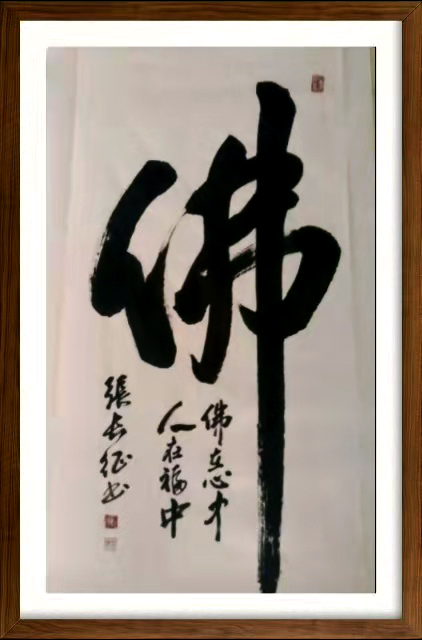 佛
佛在心中
人在福中
張长征书